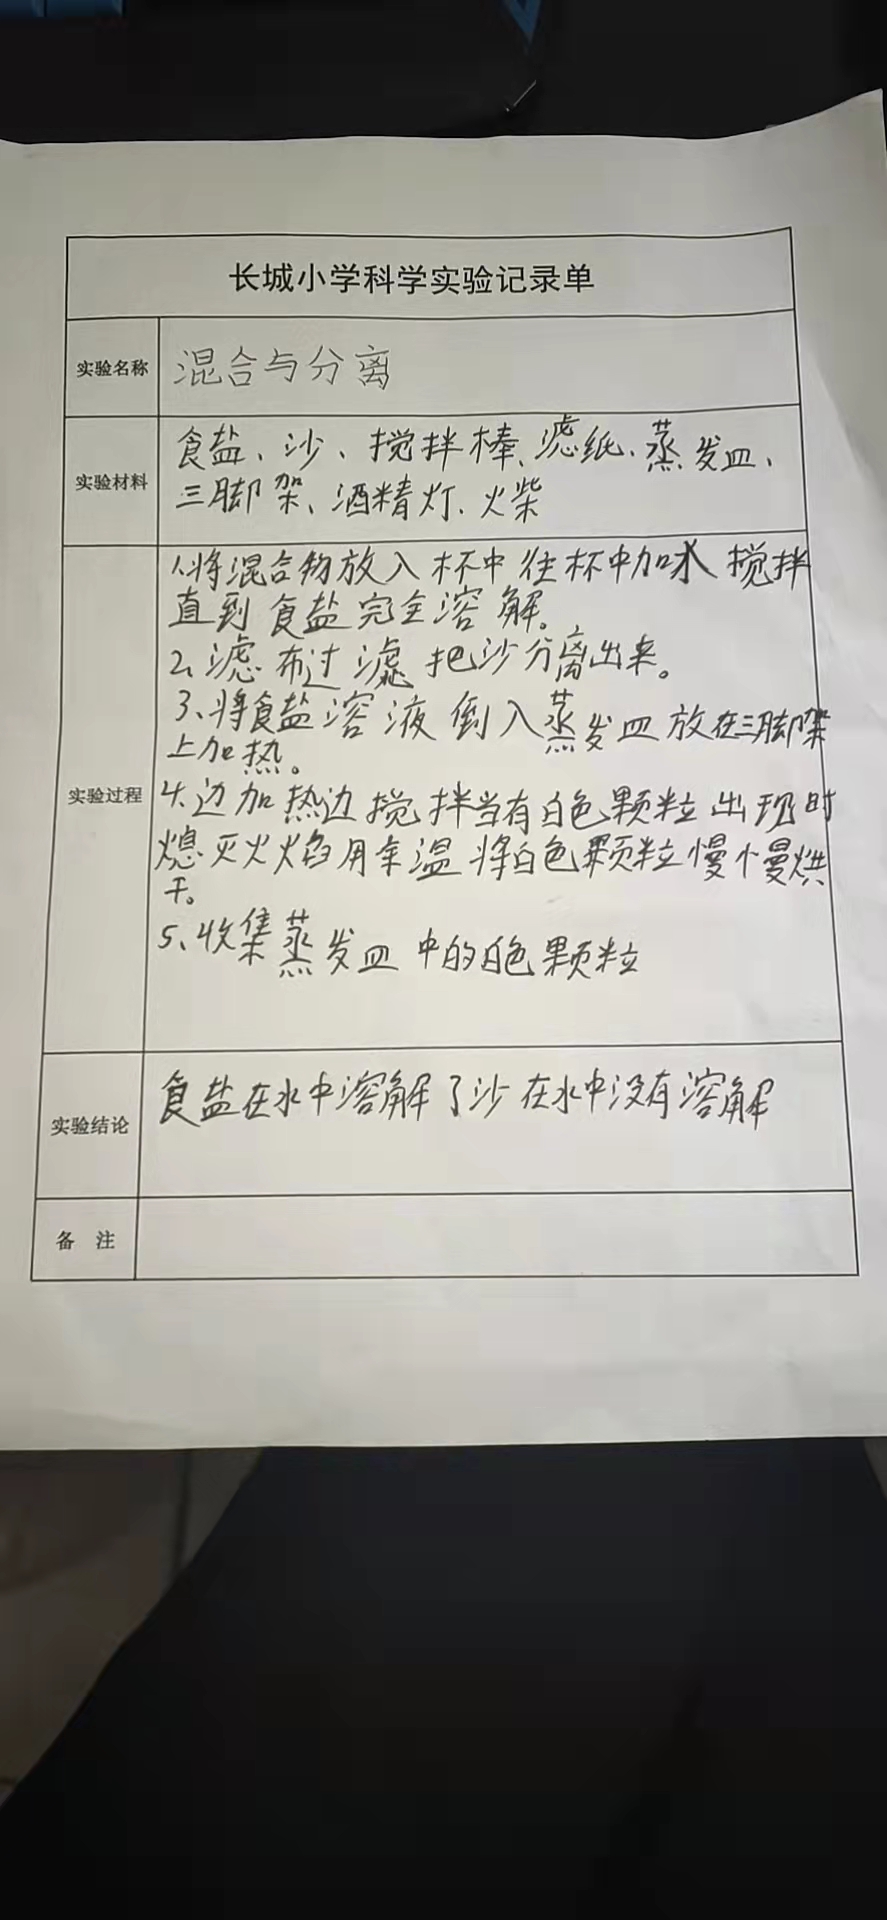 长城小学科学实验记录单
实验名称
混合与分离
实验材料
食盐、沙、搅拌棒、滤纸、蒸发皿、
三脚架、酒精灯、火柴
实验过程
1、将混合物放入杯中往杯中加水搅拌
直到食盐完全溶解。
2、滤布过滤把沙分离出来。
3、将食盐溶液倒入蒸发皿放在三脚架
上加热。
4、边加热边搅拌当有白色颗粒出现时
熄灭火焰用余温将白色颗粒慢慢烘
干。
5、收集蒸发皿中的白色颗粒
实验结论
食盐在水中溶解了沙在水中没有溶解
备 注